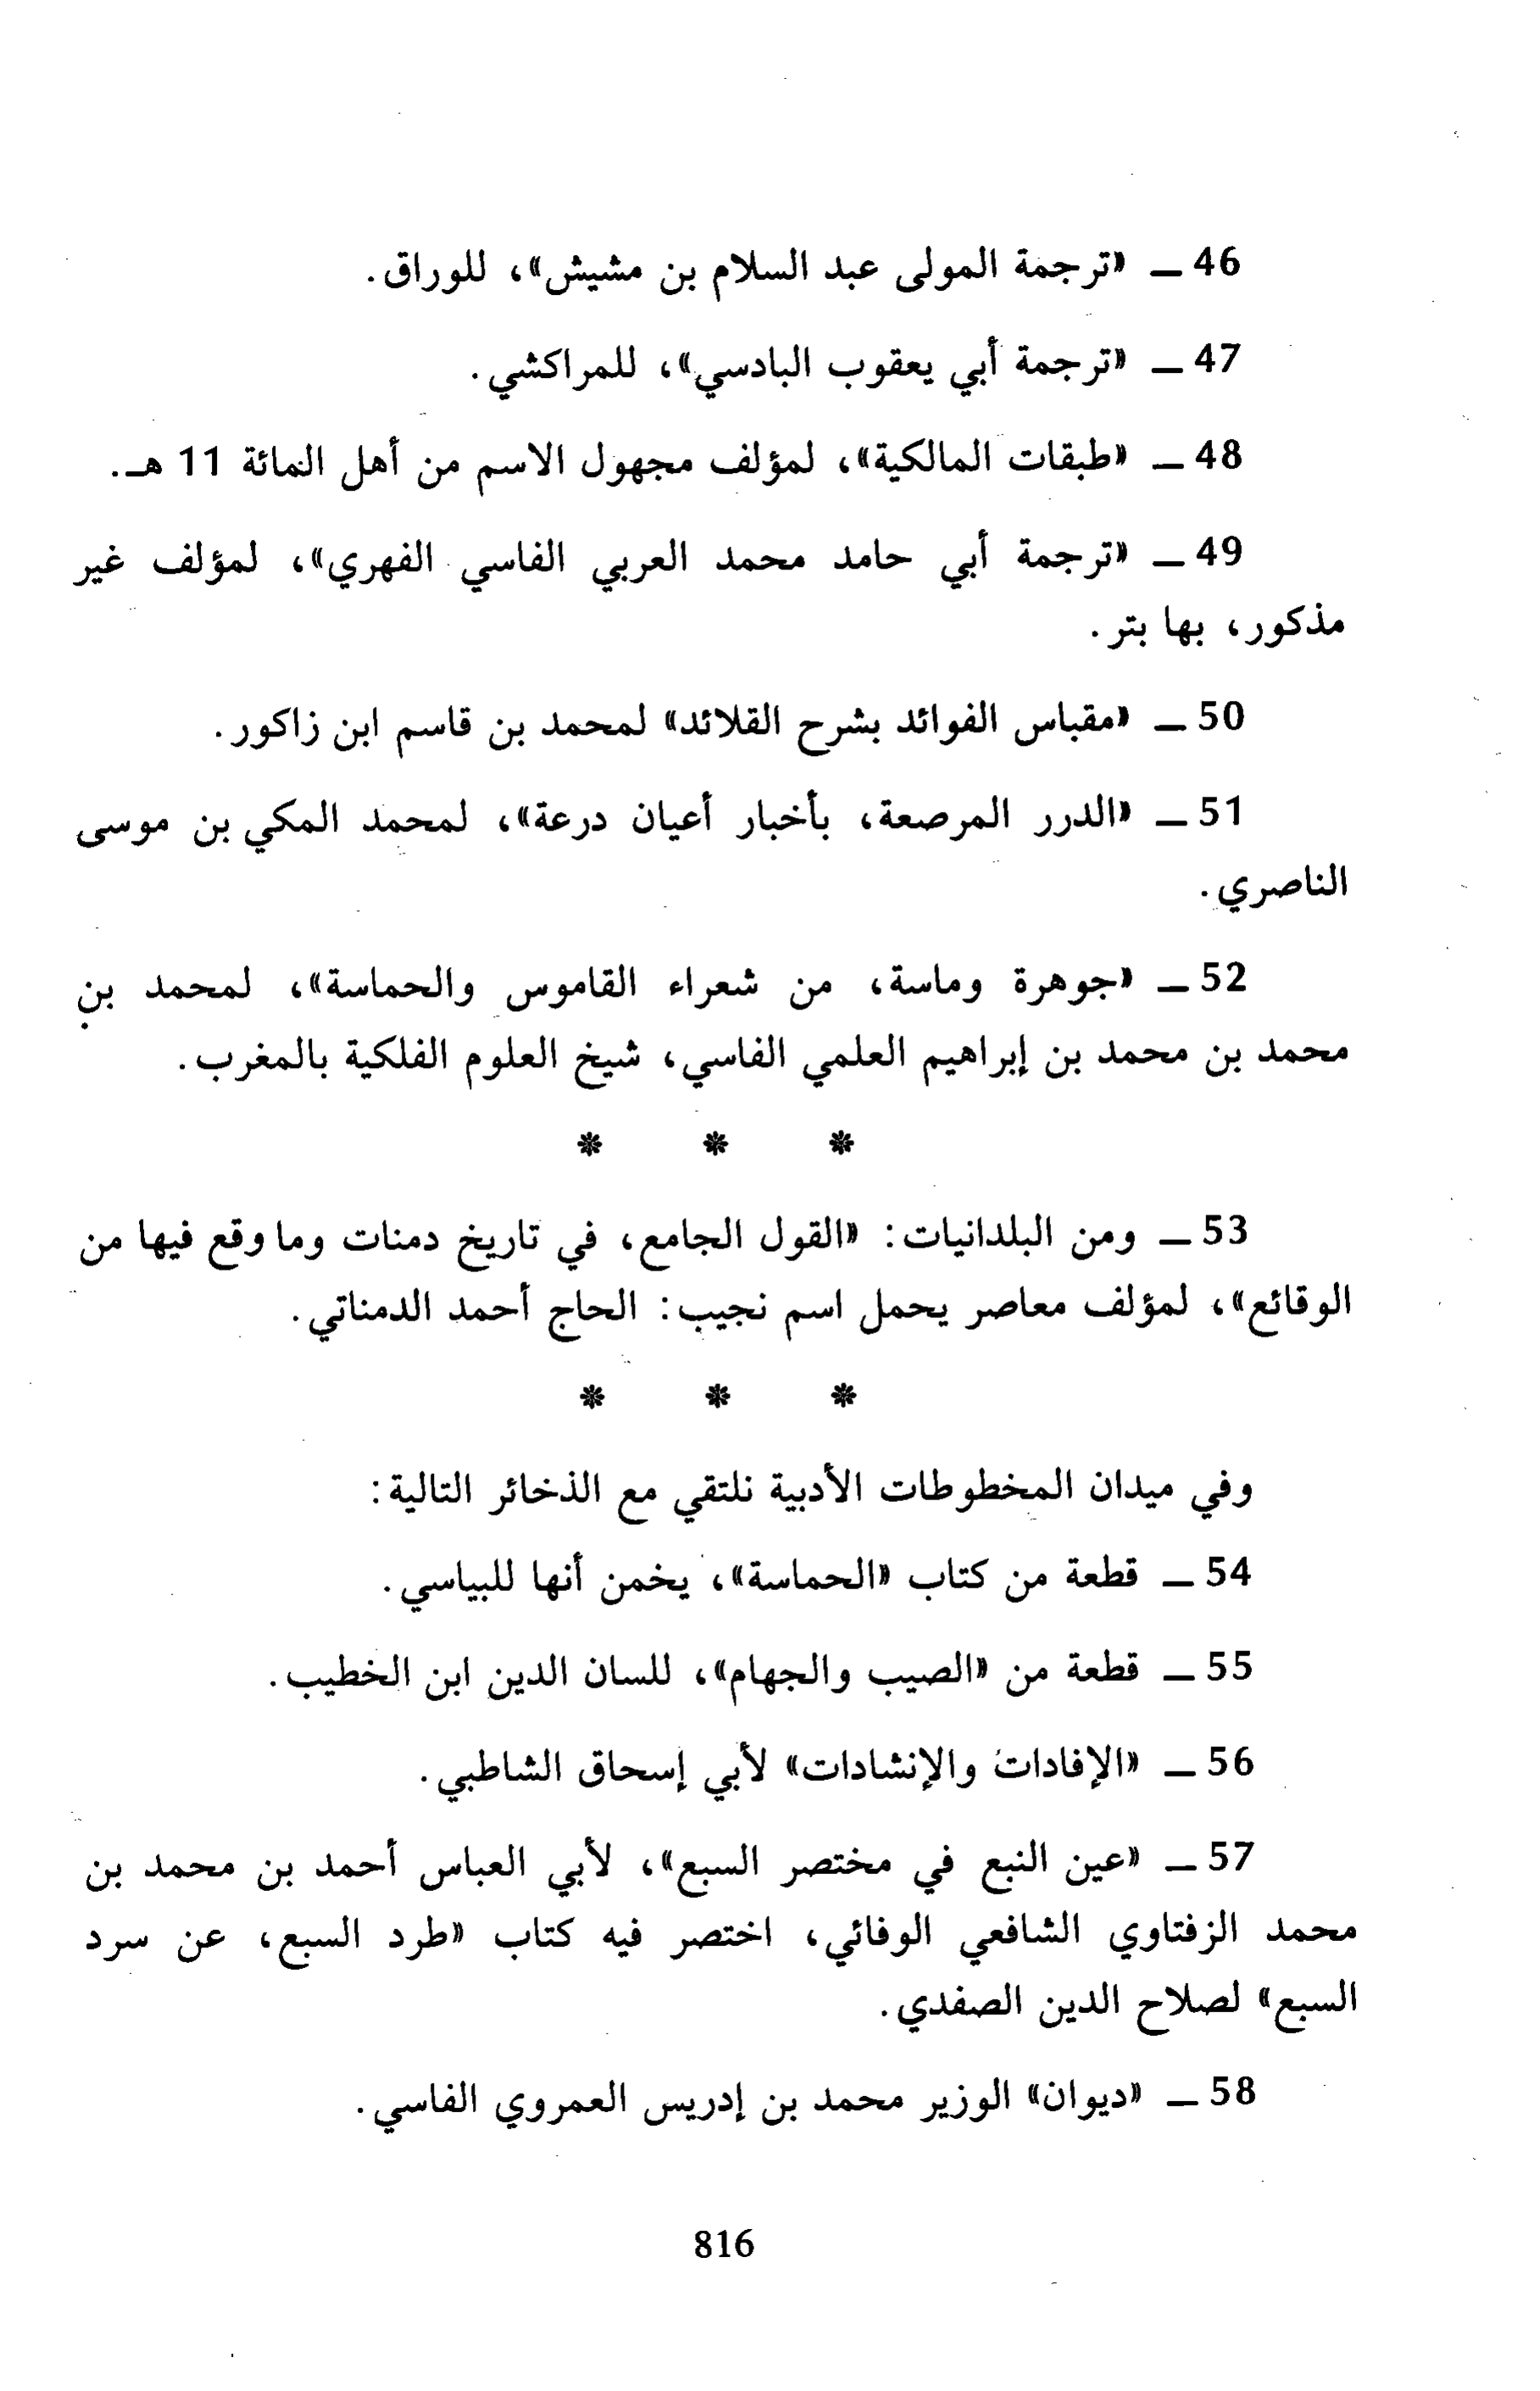 46 ــ «ترجمة المولى عبد السلام بن مشيش»، للوراق.
47 ــ «ترجمة أبي يعقوب البادسي»، للمراكشي.
48 ــ «طبقات المالكية»، لمؤلف مجهول الاسم من أهل المائة 11 هـ.
49 ــ «ترجمة أبي حامد محمد العربي الفاسي الفهري»، لمؤلف غير
مذكور، بها بتر.
50 ــ «مقباس الفوائد بشرح القلائد» لمحمد بن قاسم ابن زاكور.
51 ــ «الدرر المرصعة، بأخبار أعيان درعة»، لمحمد المكي بن موسى
الناصري.
52 ــ «جوهرة وماسة، من شعراء القاموس والحماسة»، لمحمد بن
محمد بن محمد بن إبراهيم العلمي الفاسي، شيخ العلوم الفلكية بالمغرب.
* * *
53 ــ ومن البلدانيات: «القول الجامع، في تاريخ دمنات وما وقع فيها من
الوقائع»، لمؤلف معاصر يحمل اسم نجيب: الحاج أحمد الدمناتي.
* * *
وفي ميدان المخطوطات الأدبية نلتقي مع الذخائر التالية:
54 ــ قطعة من كتاب «الحماسة»، يخمن أنها للبياسي.
55 ــ قطعة من «الصيب والجهام»، للسان الدين ابن الخطيب.
56 ــ «الإفادات والإنشادات» لأبي إسحاق الشاطبي.
57 ــ «عين النبع في مختصر السبع»، لأبي العباس أحمد بن محمد بن
محمد الزفتاوي الشافعي الوفائي، اختصر فيه كتاب «طرد السبع، عن سرد
السبع» لصلاح الدين الصفدي.
58 ــ «ديوان» الوزير محمد بن إدريس العمروي الفاسي.
816